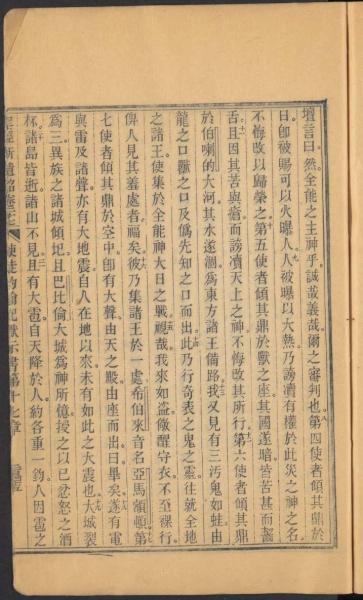 壇言曰然全能之主神乎誠哉義哉爾之審判也第四使者傾其鼎於
日卽被賜可以火曝人人被曝以大熱乃謗瀆有權於此災之神之名
不悔改以歸榮之第五使者傾其鼎於獸之座其國遂暗皆苦甚而齧
舌且因其苦與瘡而謗瀆天上之神不悔改其所行第六使者傾其鼎
於伯喇的大河其水遂涸爲東方諸王備路我又見有三汚鬼如蛙由
龍之口獸之口及僞先知之口而出此乃行奇表之鬼之靈往就全地
之諸王使集於全能神大日之戰視哉我來如盜儆醒守衣不至裸行
俾人見其羞處者福矣彼乃集諸王於一處希伯來音名亞馬領頓第
七使者傾其鼎於空中卽有大聲由天之殿由座而出曰畢矣遂有電
與雷及諸聲亦有大地震自人在地以來未有如此之大震也大城裂
爲三異族之諸城傾圮且巴比倫大城爲神所憶授之以己忿怒之酒
杯諸島皆逝諸山不見且有大雹自天降於人約各重一鈞人因雹之